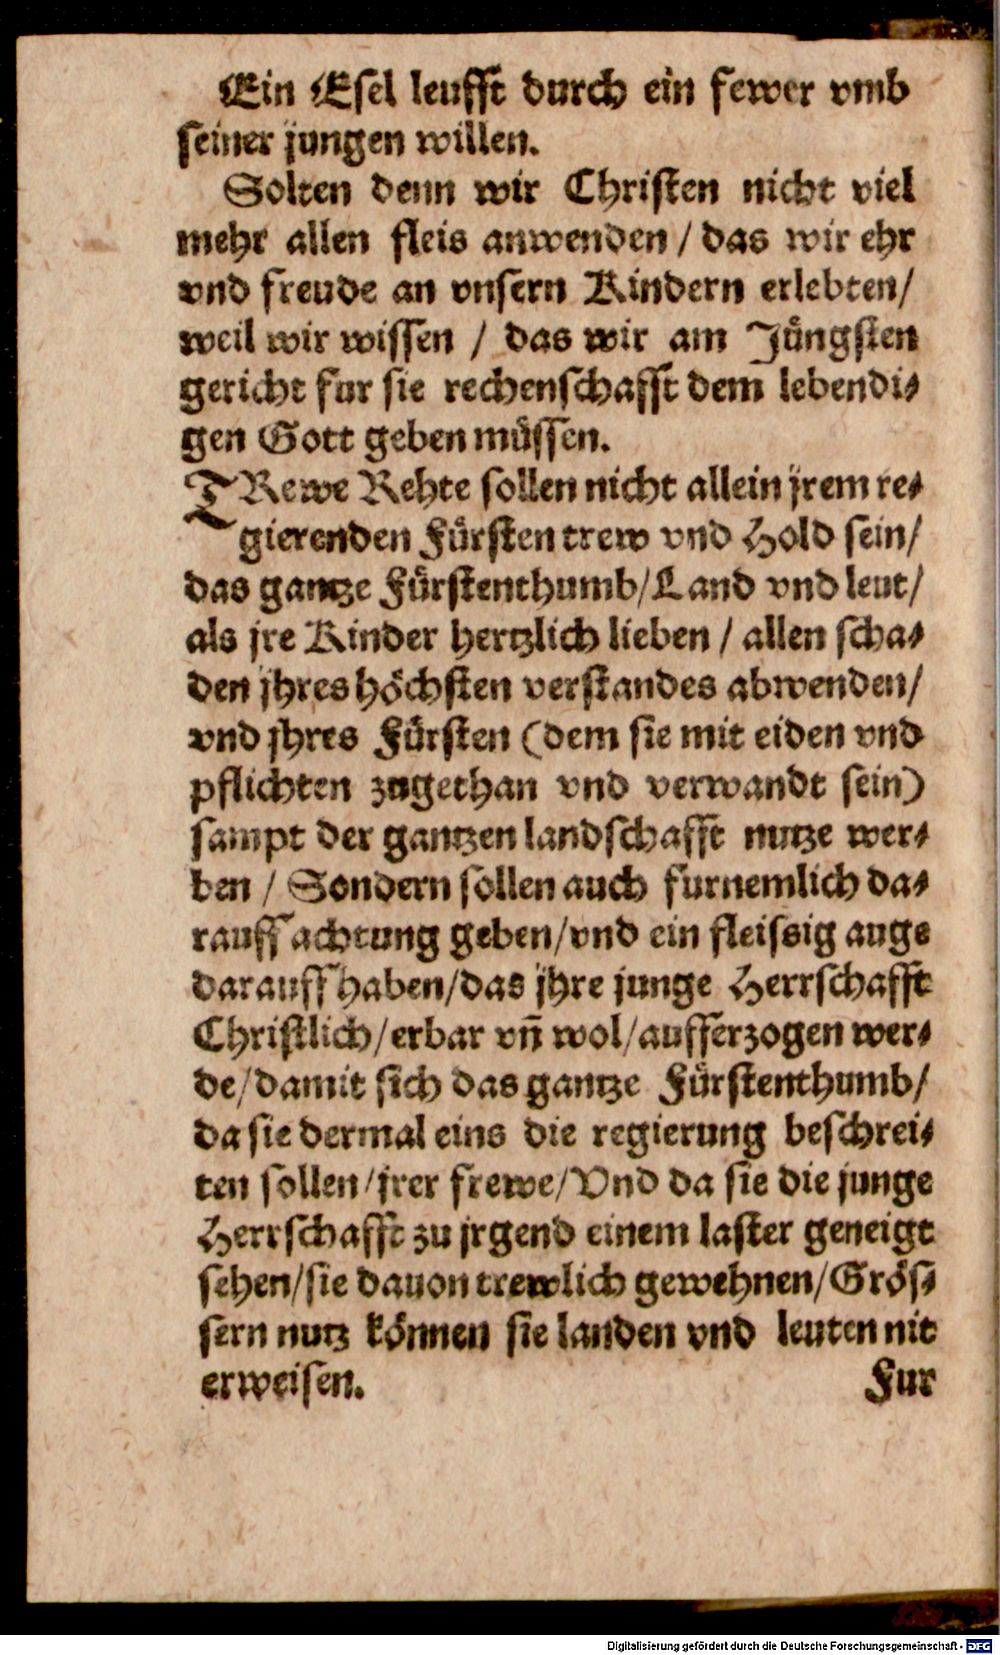 Ein Esel leufft durch ein fewer vmb
seiner jungen willen.
Solten denn wir Christen nicht viel
mehr allen fleis anwenden / das wir ehr
vnd freude an vnsern Kindern erlebten/
weil wir wissen / das wir am Jüngsten
gericht fur sie rechenschafft dem lebendi⸗
gen Gott geben müssen.
TRewe Rehte sollen nicht allein jrem re⸗
gierenden Fürsten trew vnd Hold sein/
das gantze Fürstenthumb/Land vnd leut/
als jre Kinder hertzlich lieben / allen scha⸗
den jhres höchsten verstandes abwenden/
vnd jhres Fürsten (dem sie mit eiden vnd
pflichten zugethan vnd verwandt sein)
sampt der gantzen landschafft nutze wer⸗
ben / Sondern sollen auch furnemlich da⸗
rauff achtung geben/vnd ein fleissig auge
darauff haben/das jhre junge Herrschafft
Christlich/erbar vn̄ wol/aufferzogen wer⸗
de/damit sich das gantze Fürstenthumb/
da sie dermal eins die regierung beschrei⸗
ten sollen/jrer frewe/Vnd da sie die junge
Herrschafft zu jrgend einem laster geneigt
sehen/sie dauon trewlich gewehnen/Grös⸗
sern nutz können sie landen vnd leuten nit
erweisen. Fur
Digitalisierung gefördert durch die Deutsche Forschungsgemeinschaft - DFG